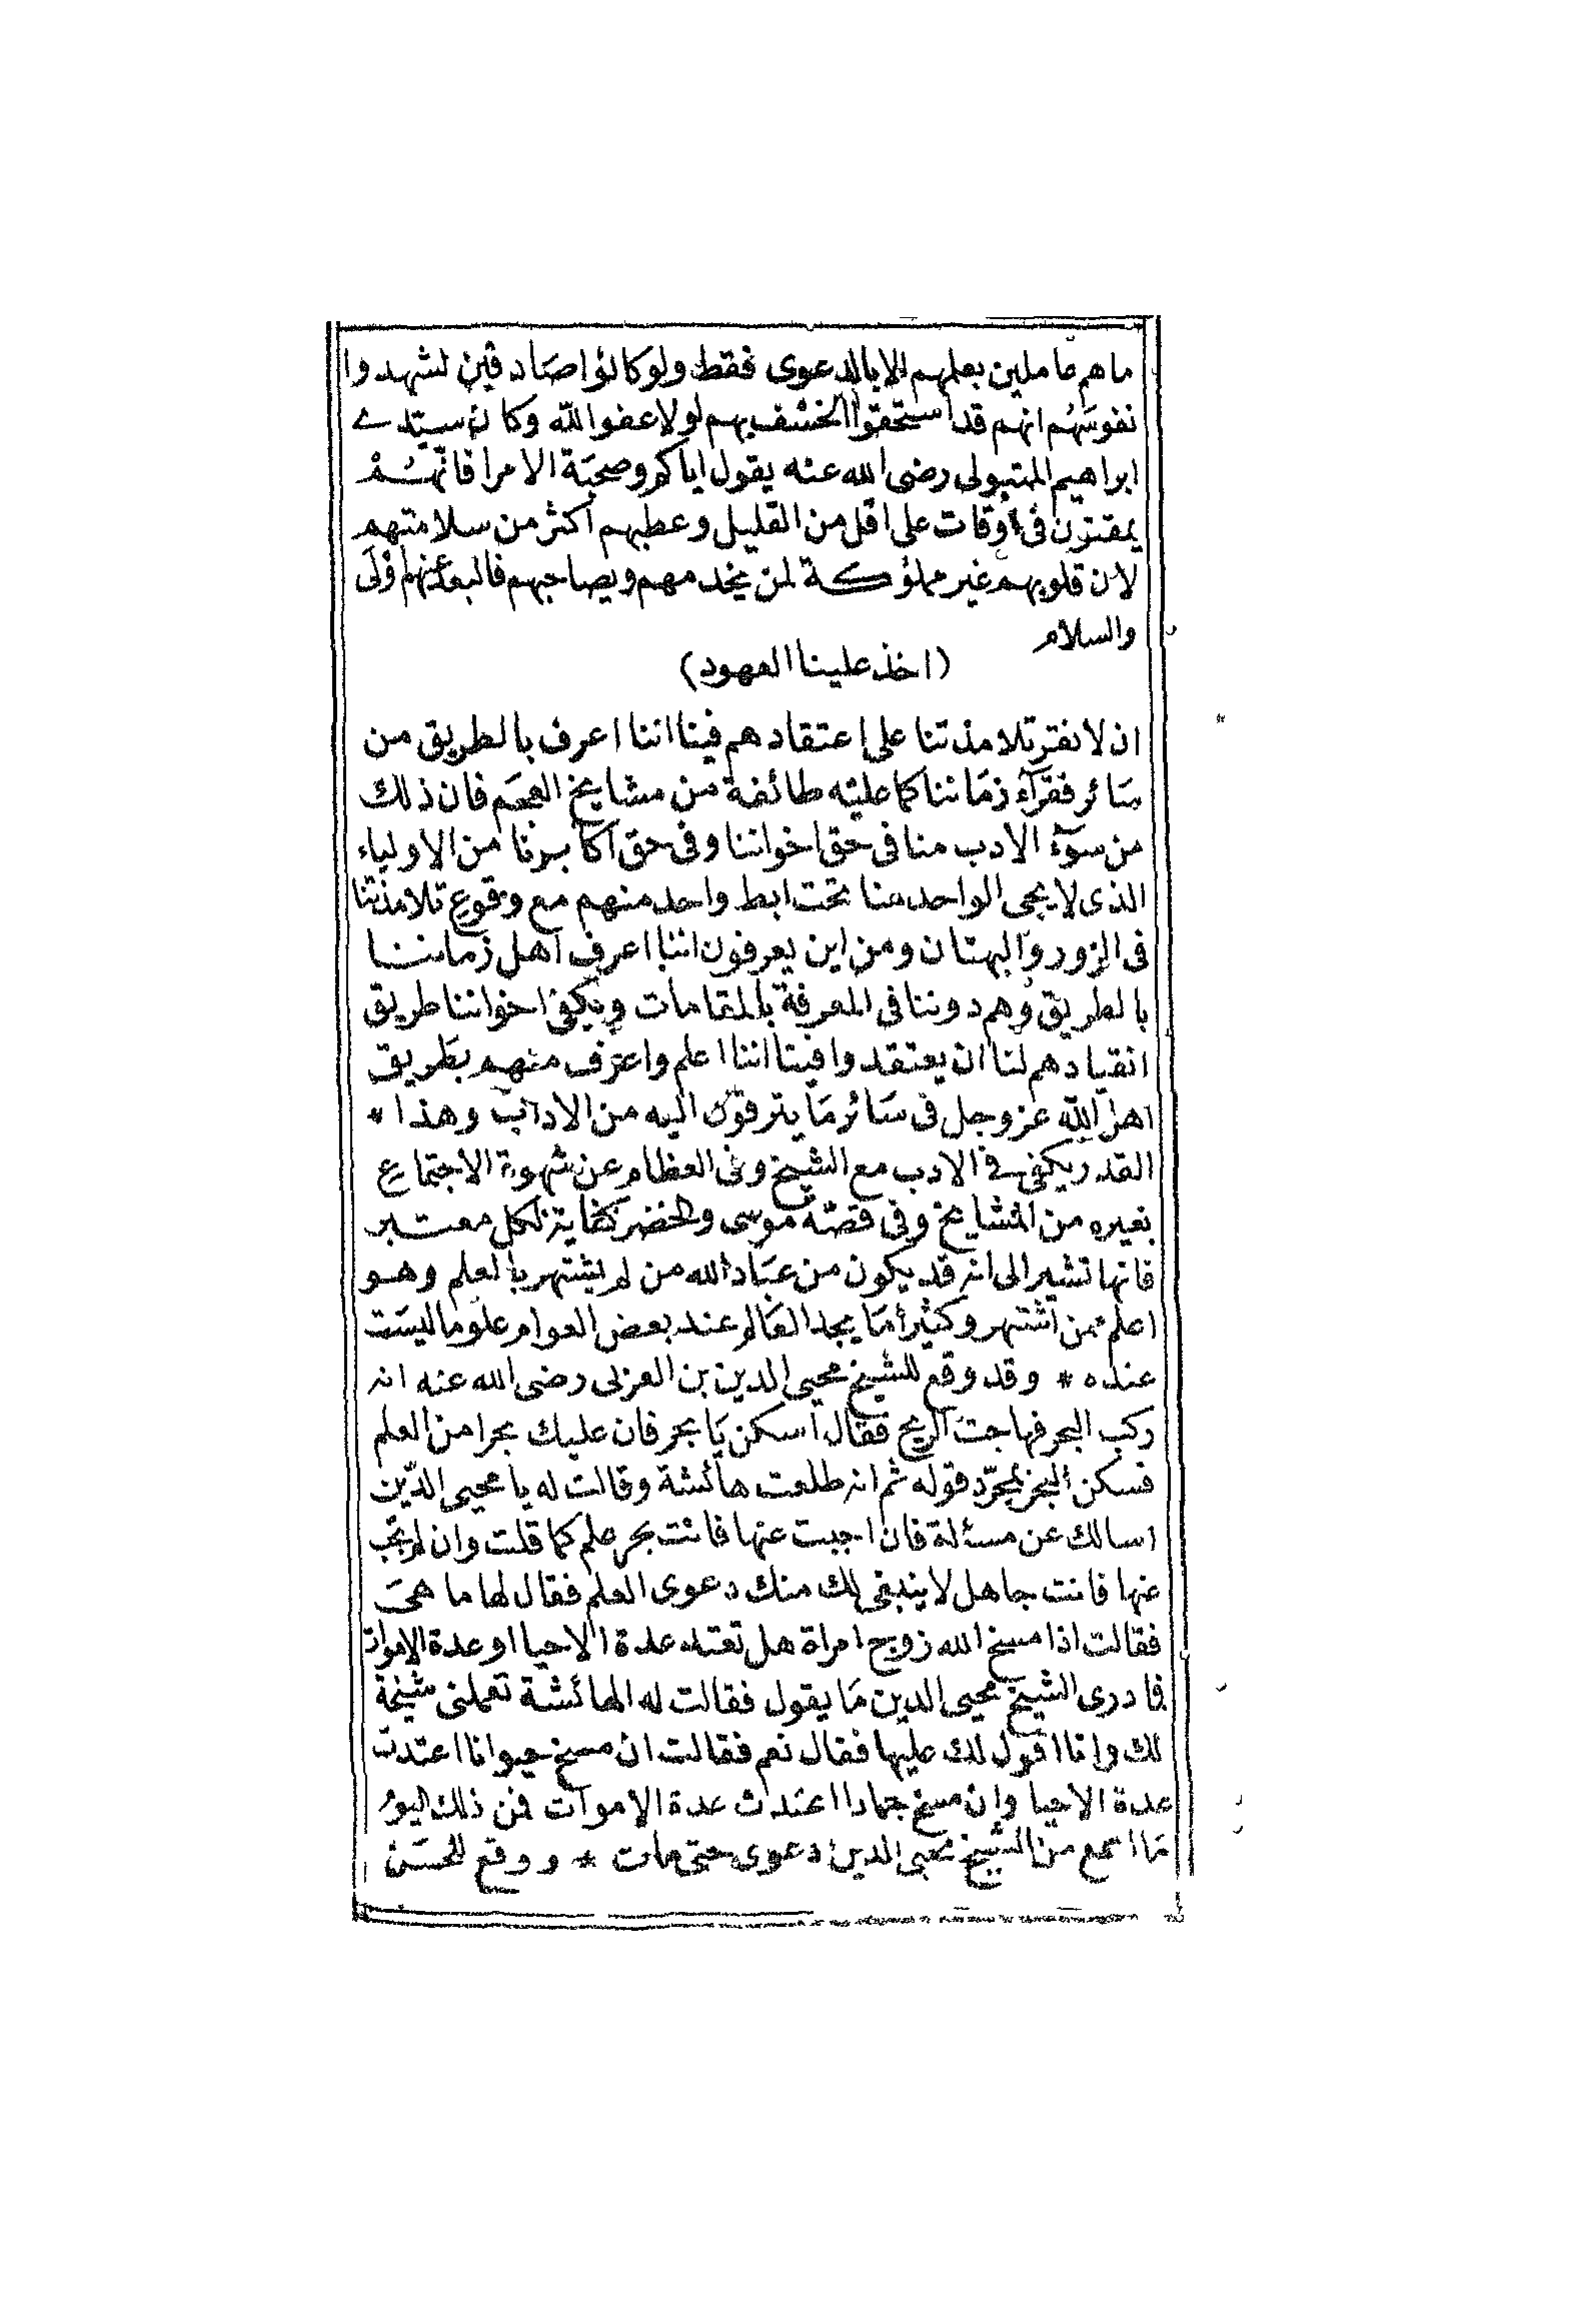 ما هم عاملين بعلمهم الا بالدعوى فقط ولو كانوا صادقين لشهدوا
نفوسهم انهم قد استحقوا الخسف بهم لولا عفو الله وكان سيدى
ابراهيم المتبولى رضى الله عنه يقول اياكم وصحبة الامرا فانهم
يمقتون فى اوقات على اقل من القليل وعطبهم اكثر من سلامتهم
لان قلوبهم غير مملوكة لمن يخدمهم ويصاحبهم فالبعد عنهم اولى
والسلام
(اخذ علينا العهود)
ان لا نقر تلامذتنا على اعتقادهم فينا اننا اعرف بالطريق من
سائر فقرآء زماننا كما عليه طائفة من مشايخ العجم فان ذلك
من سوء الادب منا فى حق اخواننا وفى حق اكابرنا من الاولياء
الذى لا يجى الواحد منا تحت ابط واحد منهم مع وقوع تلامذتنا
فى الزور والبهتان ومن اين يعرفون اننا اعرف اهل زماننا
بالطريق وهم دوننا فى المعرفة بالمقامات ويكفى اخواننا طريق
انقيادهم لنا ان يعتقدوا فينا اننا اعلم واعرف منهم بطريق
اهل الله عز وجل فى سائر ما يترقون اليه من الاداب وهذا *
القدر يكفى فى الادب مع الشيخ وفى العظام عن شهوة الاجتماع
بغيره من المشايخ وفى قصة موسى والخضر كفاية لكل معتبر
فانها تشير الى انه قد يكون من عباد الله من لم يشتهر بالعلم وهو
اعلم ممن اشتهر وكثيرا ما يجد العالم عند بعض العوام علوما ليست
عنده * وقد وقع للشيخ محيى الدين بن العربى رضى الله عنه انه
ركب البحر فهاجت الريح فقال اسكن يا بحر فان عليك بحرا من العلم
فسكن البحر بمجرد قوله ثم انه طلعت هائشة وقالت له يا محيى الدين
اسالك عن مسئلة فان اجبت عنها فانت بحر علم كما قلت وان لم تجب
عنها فانت جاهل لا ينبغى لك منك دعوى العلم فقال لها ما هى
فقالت اذا مسخ الله زوج امراة هل تعتد عدة الاحيا او عدة الاموات
فما درى الشيخ محيى الدين ما يقول فقالت له الهائشة تعملنى شيخة
لك وانا اقول لك عليها فقال نعم فقالت ان مسخ حيوانا اعتدت
عدة الاحيا وان مسخ جمادا اعتدت عدة الاموات فمن ذلك اليوم
ما اسمع من الشيخ محيى الدين دعوى حتى مات * ووقع للحسن